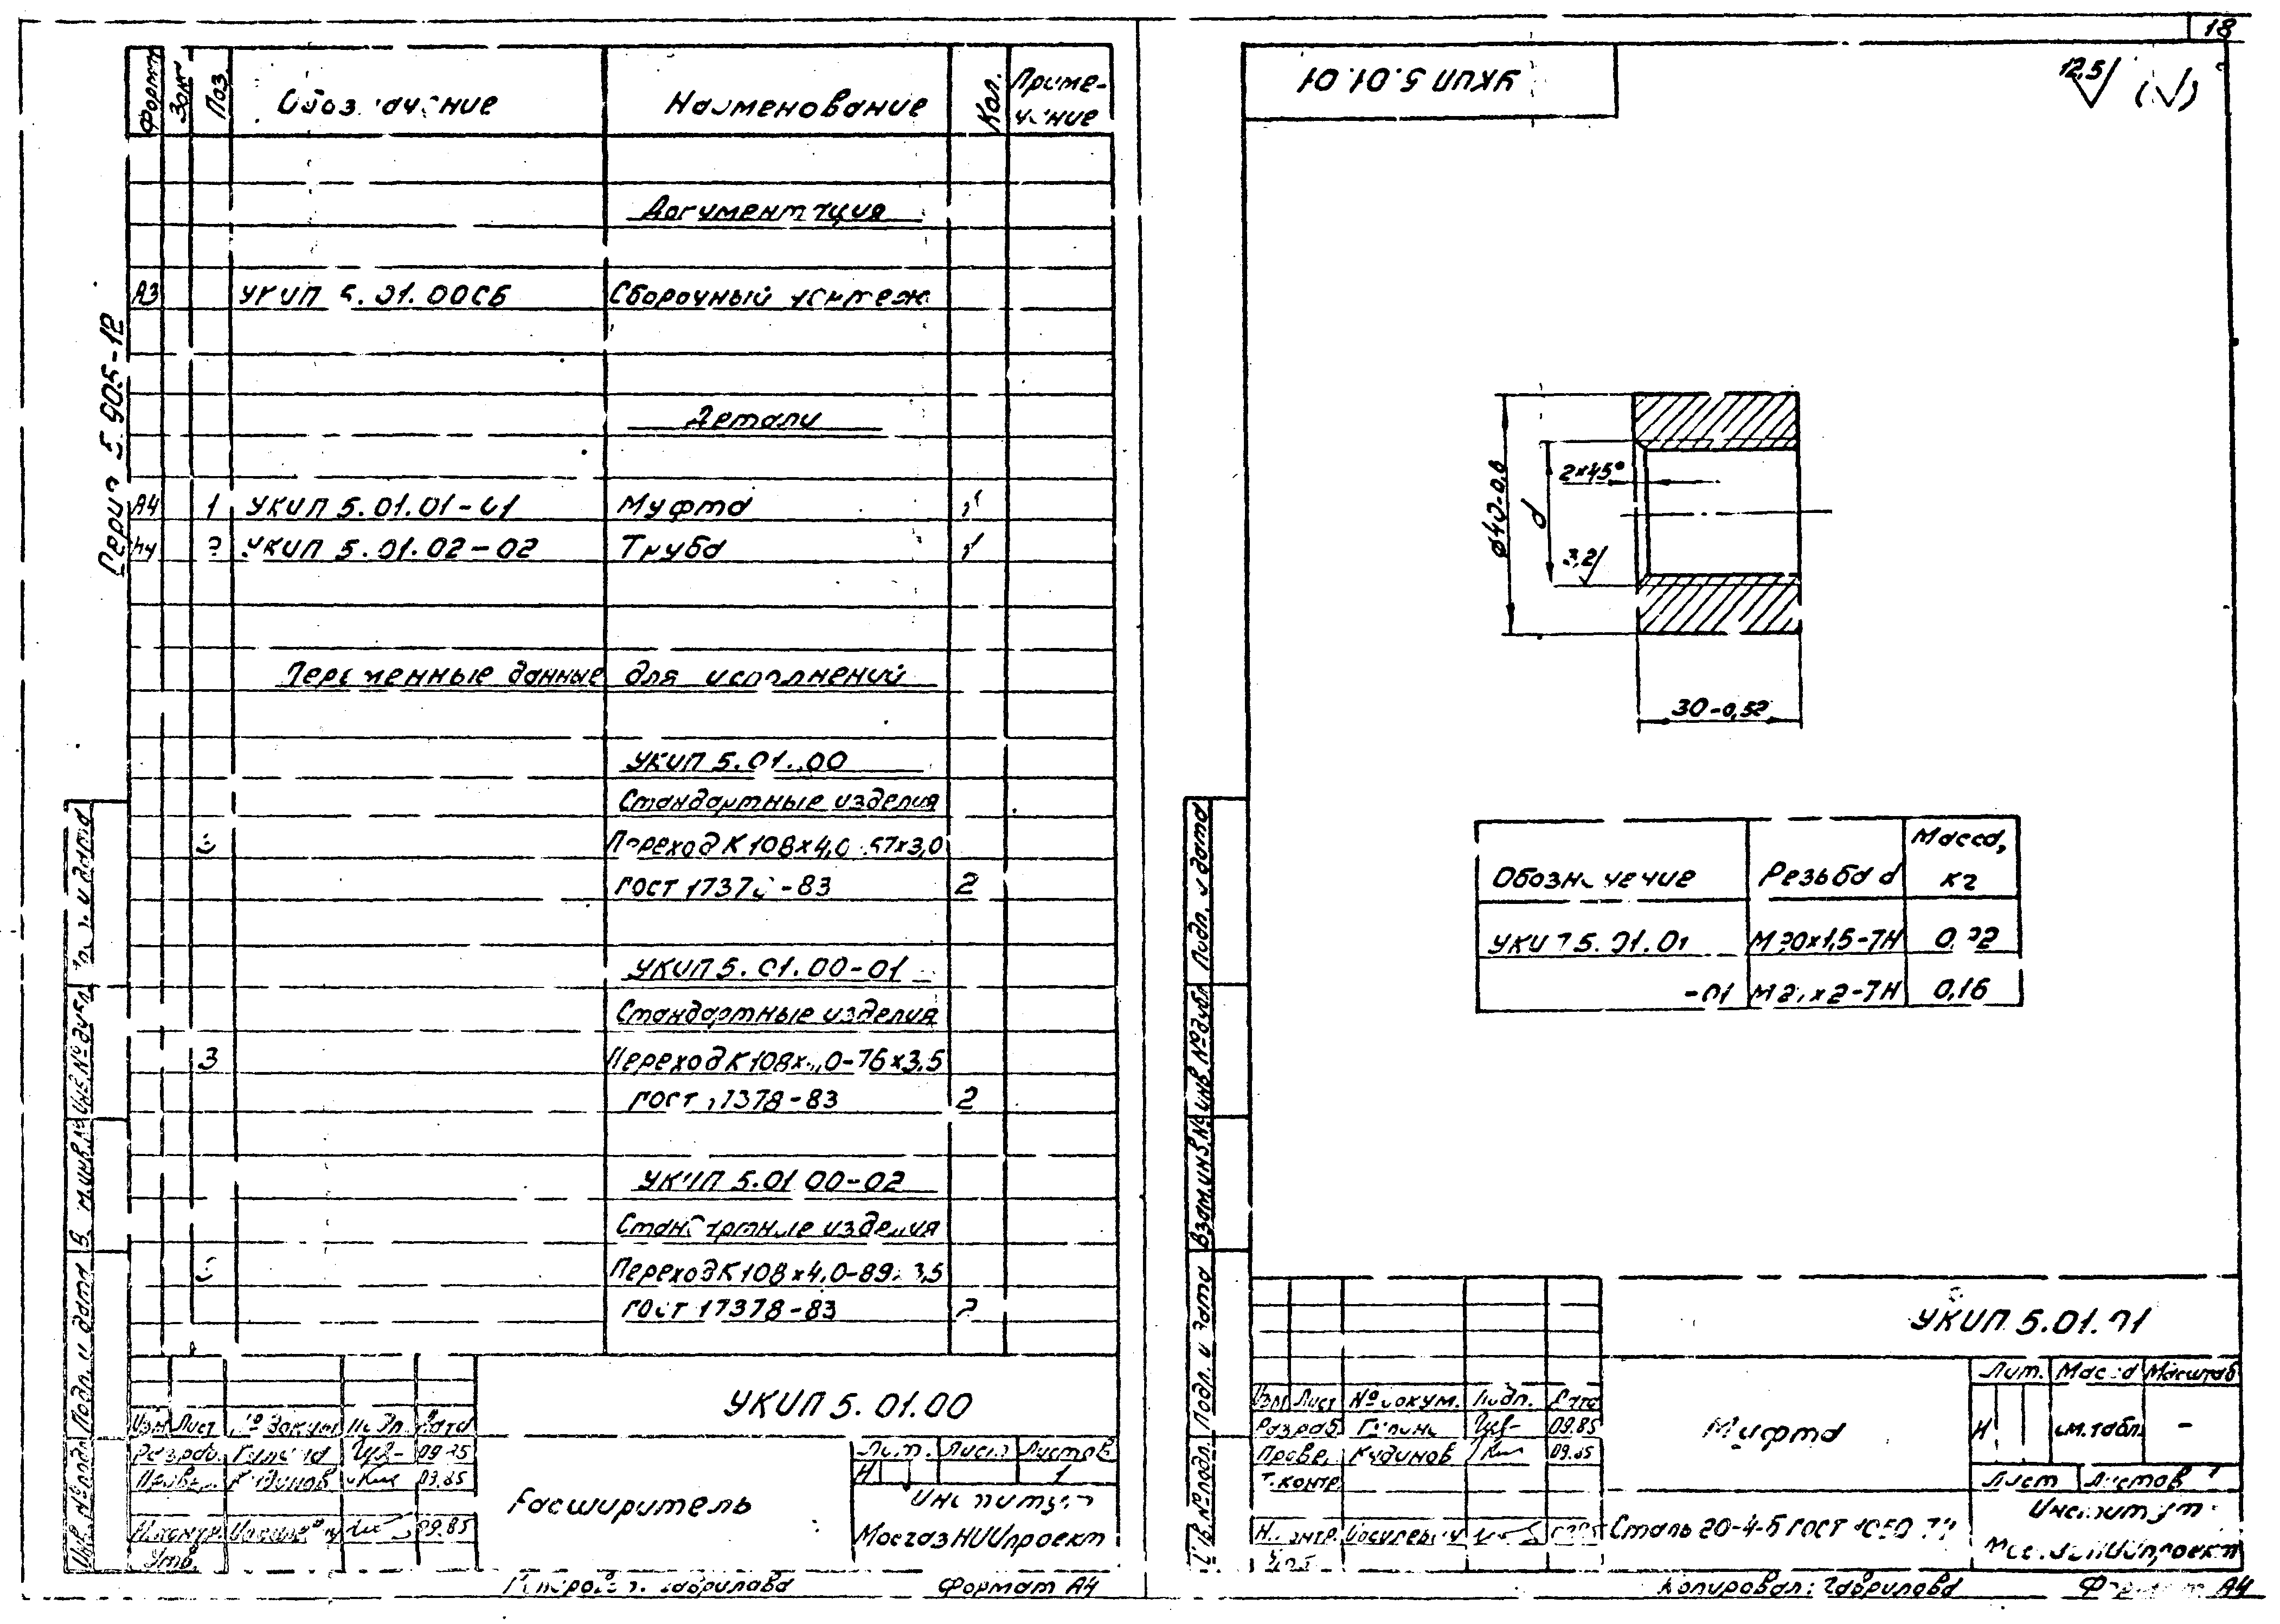 18
Формат
Зона
Поз.
Обозначение
Наименование
Кол.
Приме-
чание
Документация
А3 УКИП 5.01.00СБ Сборочный чертеж
Детали
А4 1 УКИП 5.01.01-01 Муфта 1
УКИП 5.01.02-02 Труба 1
Переменные данные для исполнений
УКИП 5.01.00
Стандартные изделия
Переход К 108х4,0 57х3,0
ГОСТ -83 2
УКИП 5.01.00-01
Стандартные изделия
3 Переход К 108х ,0-76х3,5
ГОСТ 17378-83 2
УКИП 5.01.00-02
Стандартные изделия
Переход К 108х4,0-89х3,5
ГОСТ 17378-83 2
5.905-12
Подп. и дата
Инв. № дубл.
Взам. инв. №
Подп. и дата
Инв. № подл.
Изм Лист № докум. Подп. Дата
Разраб.
Провер. Кудинов 09.85
Н.контр. 09.85
Утв.
УКИП 5.01.00
Расширитель
Лит. Лист Листов
И 1
Институт
МосгазНИИпроект
Копировал: Гаврилова Формат А4
УКИП 5.01.01
12,5 (√)
ø40-0,6
d
2×45°
3,2
30-0,52
Обозначение Резьба d Масса,
кг
УКИП 5.01.01 М20х1,5-7Н
-01 х2-7Н 0,16
Подп. и дата
Инв. № дубл.
Взам. инв. №
Подп. и дата
Инв. № подл.
УКИП 5.01.01
Изм Лист № докум. Подп. Дата
Разраб. 09.85
Провер. Кудинов 09.85
Т.контр.
Н.контр.
Утв.
Муфта
Лит. Масса Масштаб
И см.табл. -
Лист Листов 1
Сталь 20-4-Б ГОСТ 1050-74
Институт
МосгазНИИпроект
Копировал: Гаврилова Формат А4